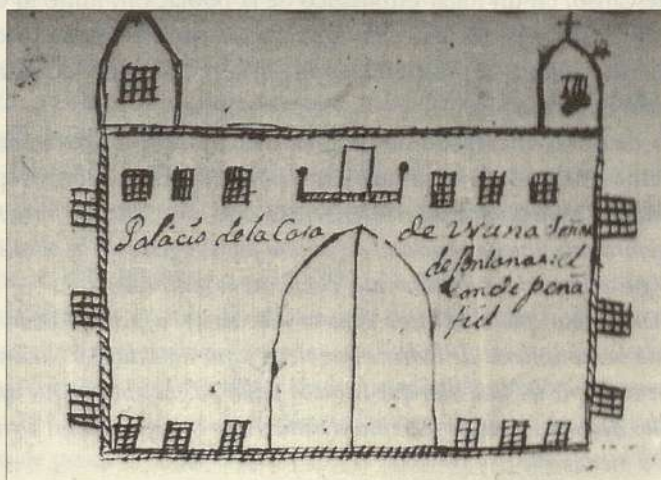 Palácio de la Casa de vruna Señor
de fontanar el
conde peña
fiel